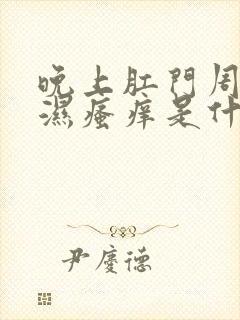 晚上肛門周
濕瘙痒是什
尹慶德